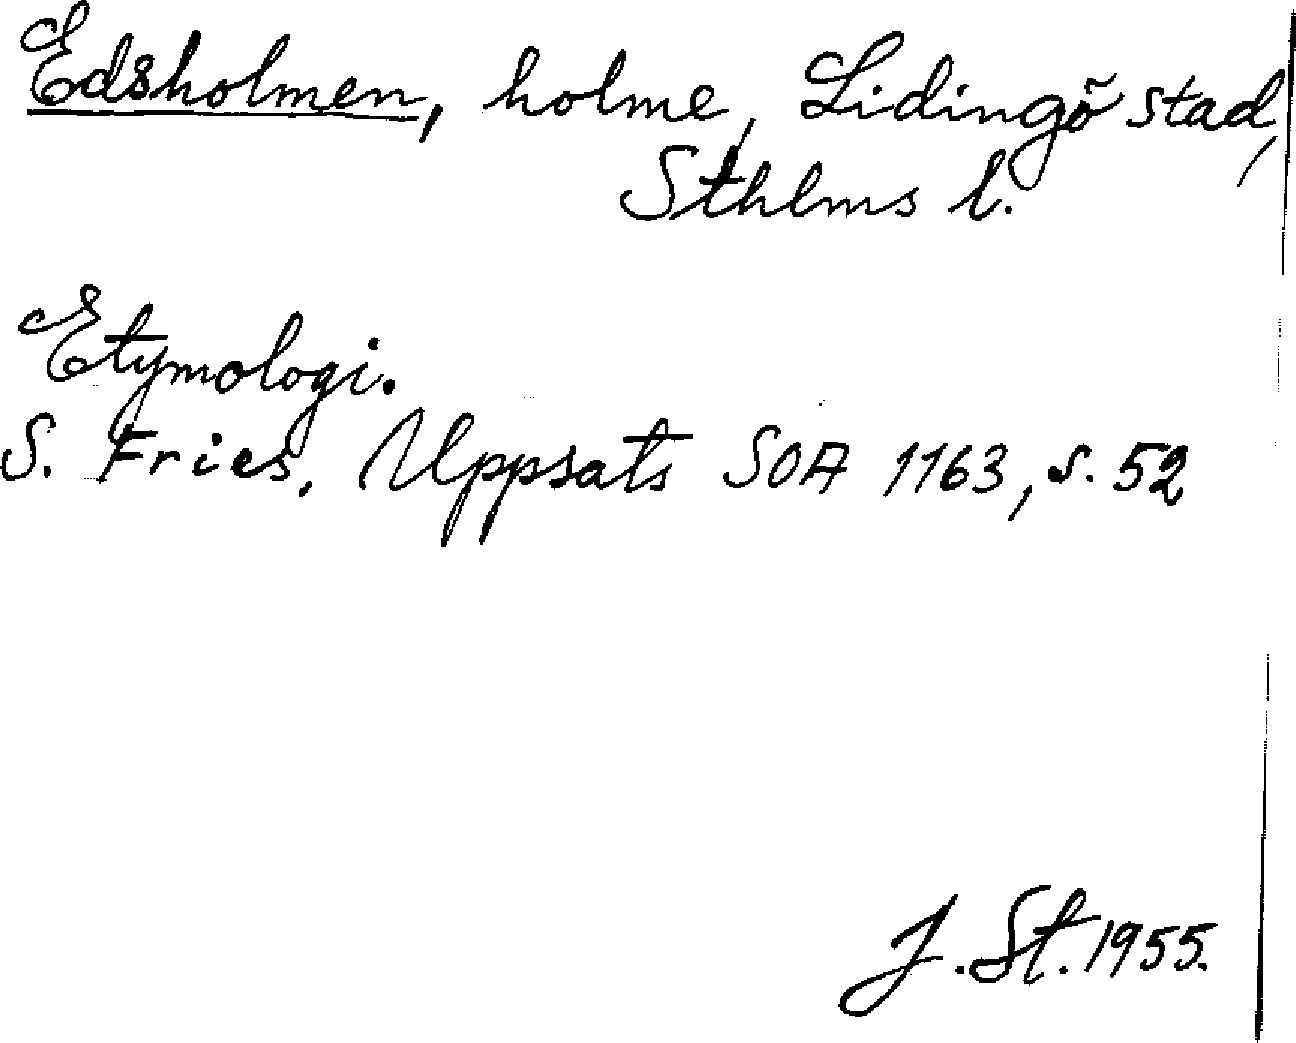 Edsholmen, holme, Lidingö stad,
Sthlms l.
Etymologi.
S. Fries, Uppsats SOA 1163, s. 52
J. St. 1955.